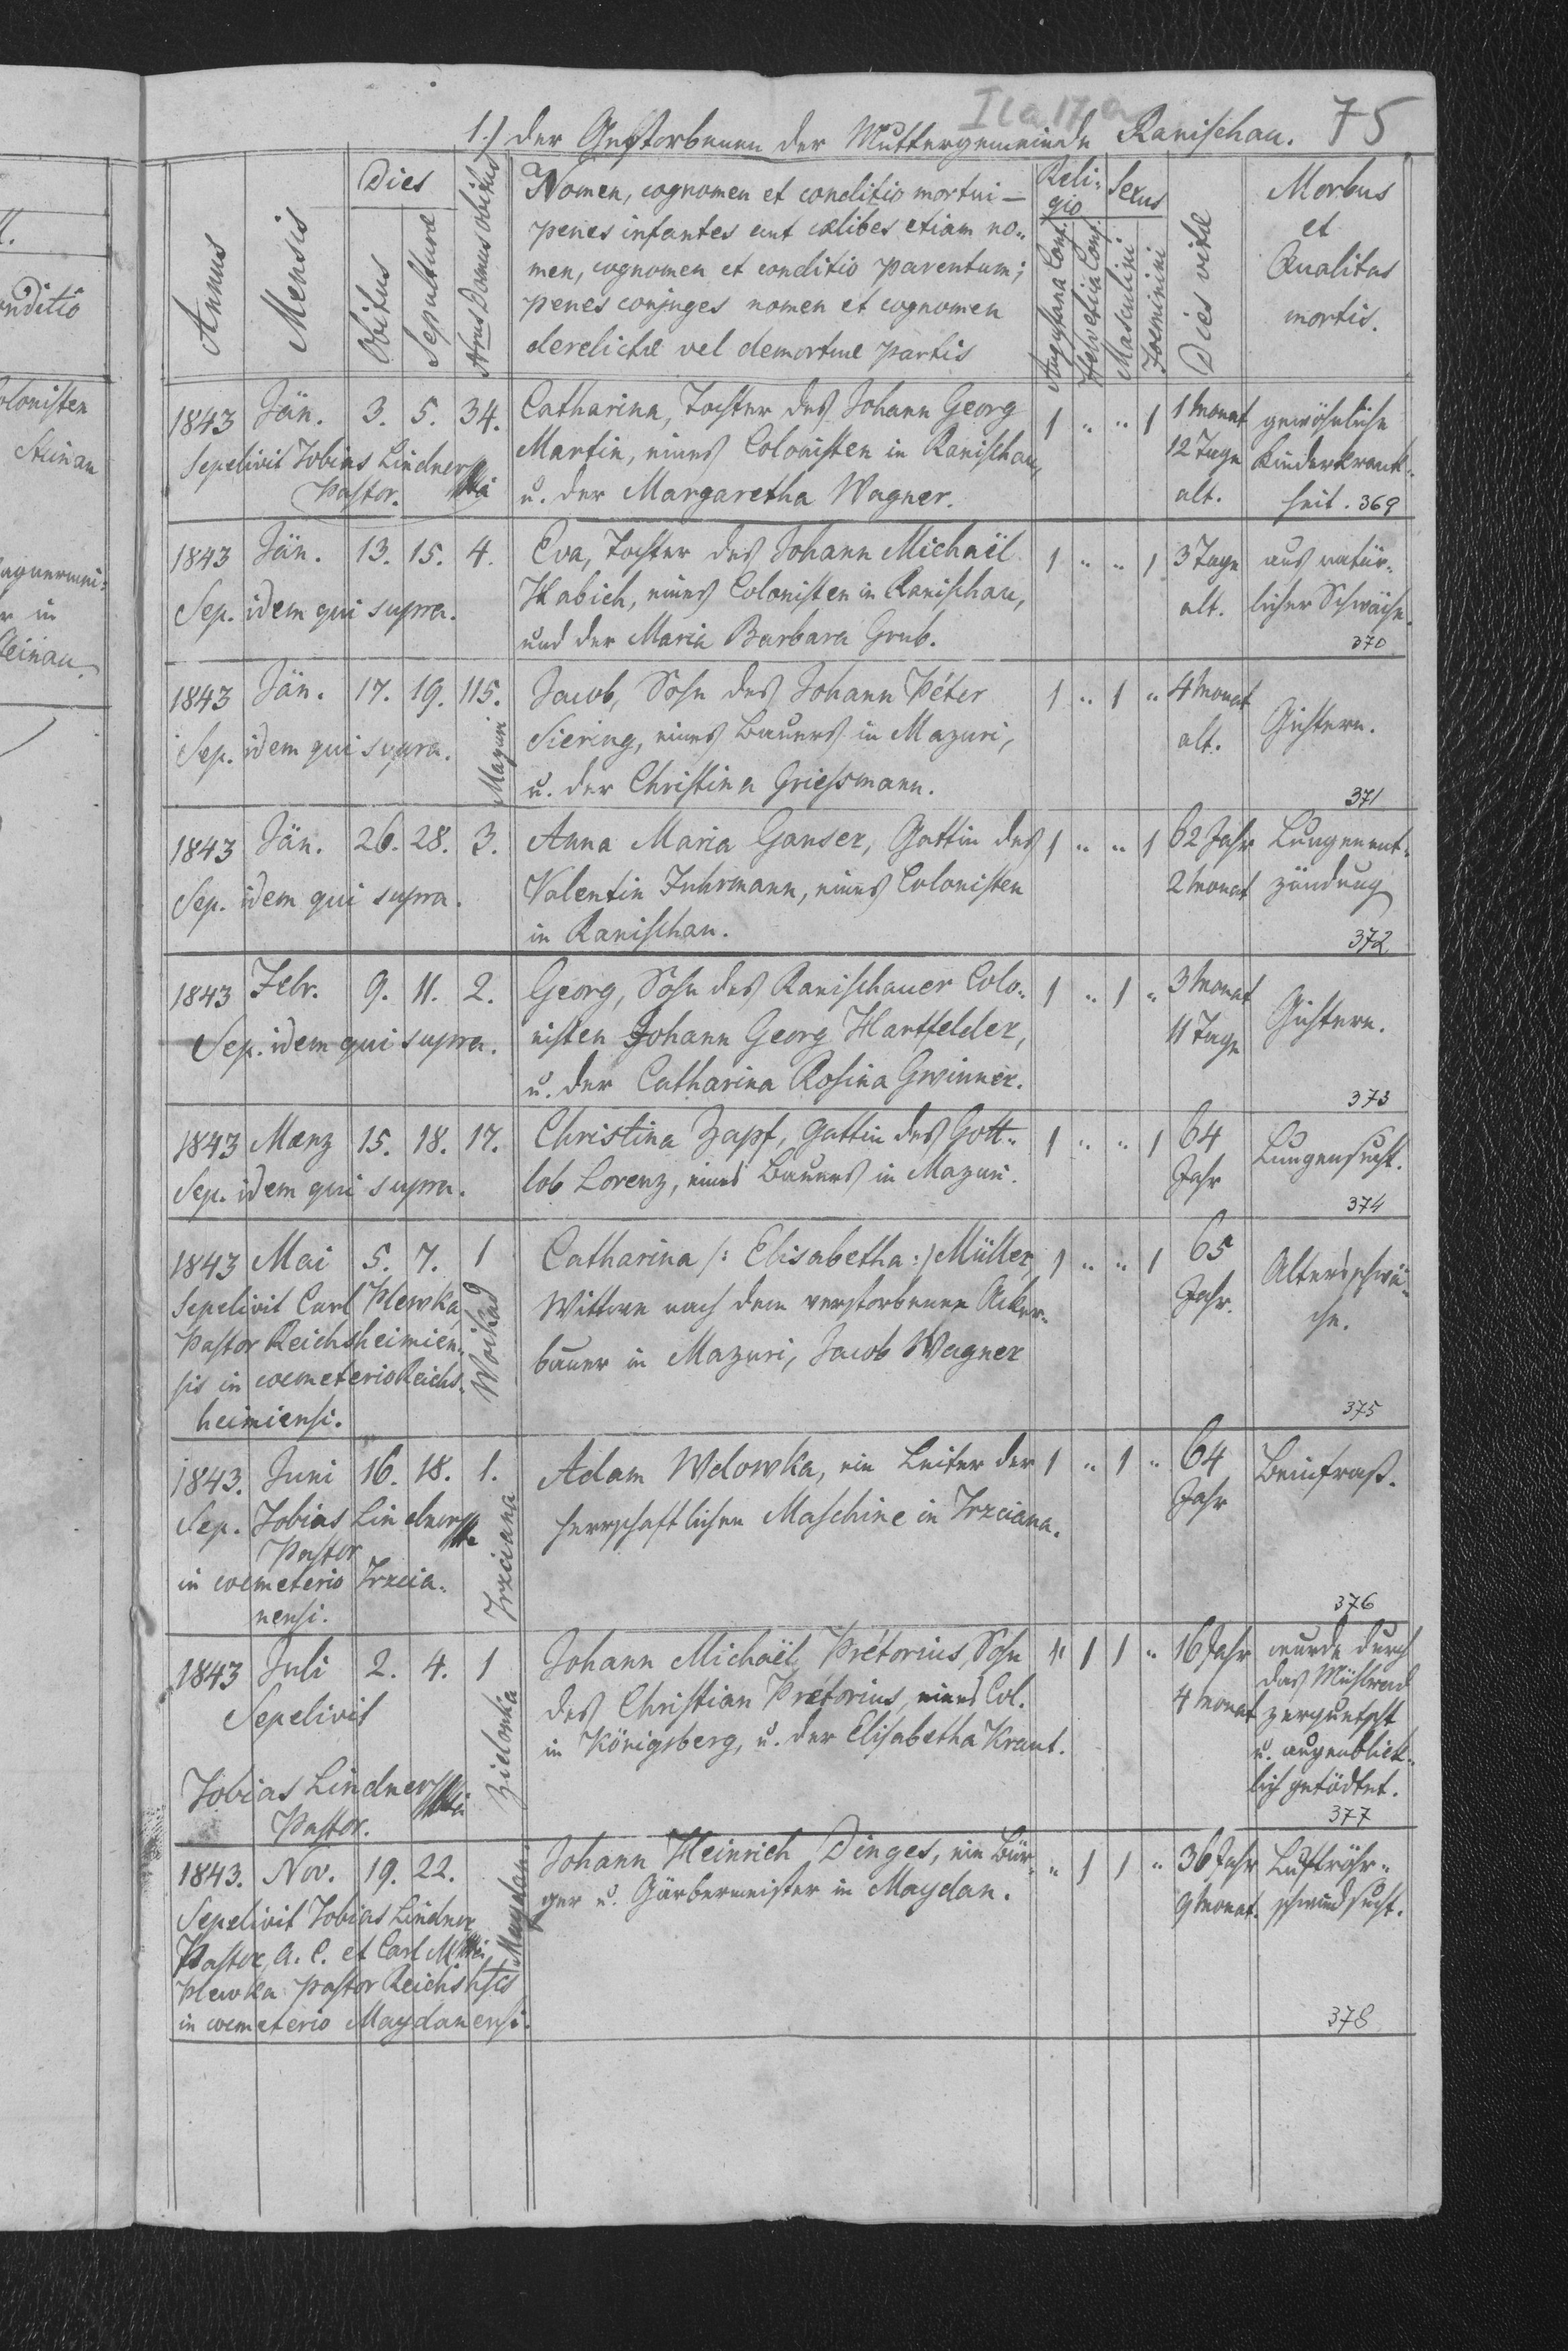 IIa 17a
75
1.) der Gestorbenen der Muttergemeinde Ranischau.
Annus
Mensis
Dies
Obitus
Sepulturæ
Nrus Domus obitus
Nomen, cognomen et conditio mortui —
penes infantes aut cælibes etiam no-
men, cognomen et conditio parentum;
penes conjuges nomen et cognomen
derelictæ vel demortuæ partis
Reli-
gio
Augustana Conf.
Helvetica Conf.
Sexus
Masculini
Foeminini
Dies vitæ
Morbus
et
Qualitas
mortis.
1843 Jän. 3. 5. 34. Catharina, Tochter des Johann Georg 1 " " 1 1 Monat gewöhnliche
Sepelivit Tobias Lindner Martin, eines Colonisten in Ranischau, 12 Tage Kinderkrank-
Pastor. u. der Margaretha Wagner. alt. heit. 369
1843 Jän. 13. 15. 4. Eva, Tochter des Johann Michaël 1 " " 1 3 Tage aus natür-
Sep. idem qui supra. Habich, eines Colonisten in Ranischau, alt. licher Schwäche.
und der Maria Barbara Grub. 370
1843 Jän. 17. 19. 115. Jacob, Sohn des Johann Péter 1 " 1 " 4 Monat
Sep. idem qui supra. Mazuri Siering, eines Bauers in Mazuri, alt. Gichtern.
u. der Christina Griessmann. 371
1843 Jän. 26. 28. 3. Anna Maria Ganser, Gattin des 1 " " 1 62 Jahr Lungenent-
Sep. idem qui supra. Valentin Fuhrmann, eines Colonisten 2 Monat zündung
in Ranischau. 372
1843 Febr. 9. 11. 2. Georg, Sohn des Ranischauer Colo- 1 " 1 " 3 Monat
Sep. idem qui supra. nisten Johann Georg Hartfelder, 11 Tage Gichtern.
u. der Catharina Rosina Gwinner. 373
1843 Mærz 15. 18. 17. Christina Zapf, Gattin des Gott- 1 " " 1 64 Lungensucht.
Sep. idem qui supra. lob Lorenz, eines Bauers in Mazuri. Jahr
374
1843 Mai 5. 7. 1 Catharina /: Elisabetha :/ Müller, 1 " " 1 65 Altersschwä-
Sepelivit Carl Plewka, Wittwe nach dem verstorbenen Acker- Jahr. che.
Pastor Reichsheimien- bauer in Mazuri, Jacob Wagner
sis in coemeterio Reichs-
heimiensi. 375
1843. Juni 16. 18. 1. Adam Wdowka, ein Leiter der 1 " 1 " 64 Beinfraß.
Sep. Tobias Lindner Trzciana herrschaftlichen Maschine in Trzciana. Jahr
Pastor
in coemeterio Trzcia-
nensi. 376
1843 Juli 2. 4. 1 Johann Michaël Prétorius, Sohn " 1 1 " 16 Jahr wurde durch
Sepelivit Zielonka des Christian Prétorius, eines Col. 4 Monat das Mühlrad
in Königsberg, u. der Elisabetha Kraut. zerquetscht
u. augenblick-
Tobias Lindner lich getödtet.
Pastor. 377
1843. Nov. 19. 22. Maydan. Johann Heinrich Dinges, ein Bür- " 1 1 " 36 Jahr Luftröhr-
Sepelivit Tobias Lindner ger u. Gärbermeister in Maydan. 9 Monat. schwindsucht.
Pastor, A. C. et Carl
Plewka Pastor
in coemeterio Maydanensi. 378